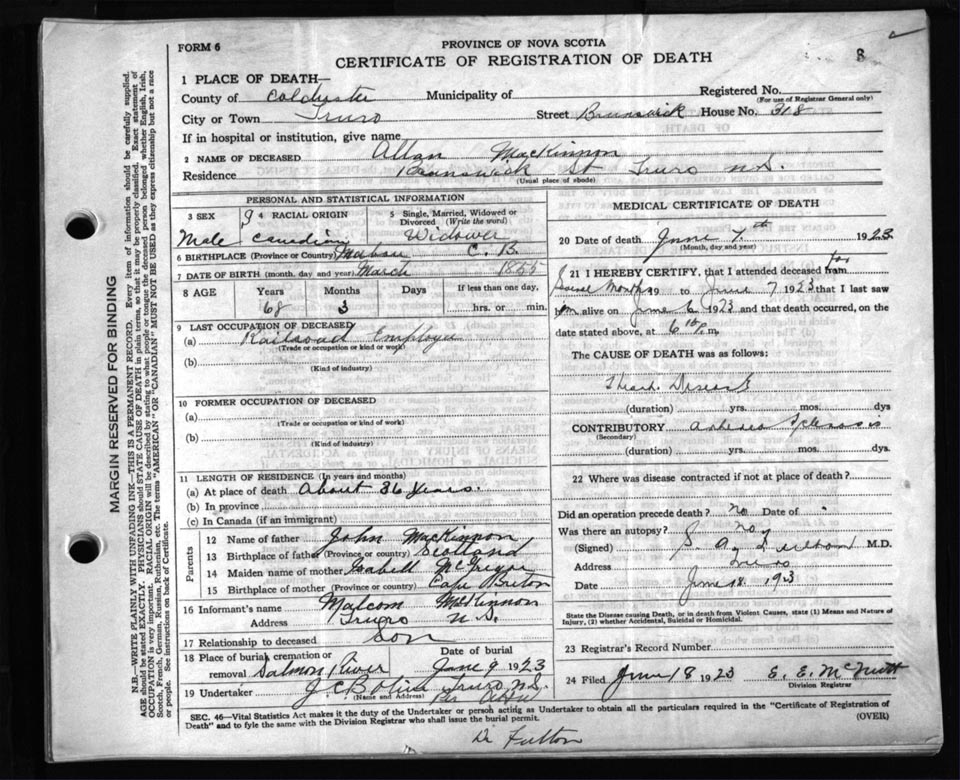 FORM 6
PROVINCE OF NOVA SCOTIA
CERTIFICATE OF REGISTRATION OF DEATH
8
1 PLACE OF DEATH—
County of Colchester Municipality of Registered No.
(For use of Registrar General only)
City or Town Truro Street Brunswick House No. 318
If in hospital or institution, give name
2 NAME OF DECEASED Allan MacKinnon
Residence Brunswick St Truro N.S.
(Usual place of abode)
PERSONAL AND STATISTICAL INFORMATION
3 SEX 4 RACIAL ORIGIN 5 Single, Married, Widowed or Divorced (Write the word)
Male Canadian Widower
6 BIRTHPLACE (Province or Country) Mabou C. B.
7 DATE OF BIRTH (month, day and year) March 1855
8 AGE Years Months Days If less than one day,
68 3 hrs. or min.
9 LAST OCCUPATION OF DECEASED
(a) Railroad Employee
(Trade or occupation or kind of work)
(b)
(Kind of industry)
10 FORMER OCCUPATION OF DECEASED
(a)
(Trade or occupation or kind of work)
(b)
(Kind of industry)
11 LENGTH OF RESIDENCE (In years and months)
(a) At place of death About 36 Years.
(b) In province
(c) In Canada (if an immigrant)
Parents
12 Name of father John MacKinnon
13 Birthplace of father (Province or country) Scotland
14 Maiden name of mother Isabell McGregor
15 Birthplace of mother (Province or country) Cape Breton
16 Informant's name Malcom McKinnon
Address Truro N.S.
17 Relationship to deceased Son
18 Place of burial, cremation or removal Salmon River Date of burial June 9 1923
19 Undertaker Truro N.S.
(Name and Address)
MEDICAL CERTIFICATE OF DEATH
20 Date of death June 7th 1923
(Month, day and year)
21 I HEREBY CERTIFY, that I attended deceased from for
Several Months 19 to June 7 1923 that I last saw
him alive on June 6 1923 and that death occurred, on the
date stated above, at 6 P.m.
The CAUSE OF DEATH was as follows:
Heart Disease
(duration) yrs. mos. dys
CONTRIBUTORY Arterio Sclerosis
(Secondary)
(duration) yrs. mos. dys.
22 Where was disease contracted if not at place of death?
Did an operation precede death? No Date of
Was there an autopsy? No
(Signed) M.D.
Address Truro
Date June 18 1923
State the Disease causing Death, or in death from Violent Causes, state (1) Means and Nature of Injury, (2) whether Accidental, Suicidal or Homicidal.
23 Registrar's Record Number
24 Filed June 18 1923 E. E. McNutt
Division Registrar
SEC. 46—Vital Statistics Act makes it the duty of the Undertaker or person acting as Undertaker to obtain all the particulars required in the "Certificate of Registration of
Death" and to fyle the same with the Division Registrar who shall issue the burial permit. (OVER)
Dr Fulton
MARGIN RESERVED FOR BINDING
N.B.—WRITE PLAINLY WITH UNFADING INK—THIS IS A PERMANENT RECORD. Every item of information should be carefully supplied.
AGE should be stated EXACTLY. PHYSICIANS should STATE CAUSE OF DEATH in plain terms, so that it may be properly classified. Exact statement of
OCCUPATION is very important. RACIAL ORIGIN will be described by stating to what people or tongue the deceased person belonged whether English, Irish,
Scotch, French, German, Russian, Ruthenian, etc. The terms "AMERICAN" OR "CANADIAN" MUST NOT BE USED as they express citizenship but not a race
or people. See instructions on back of Certificate.